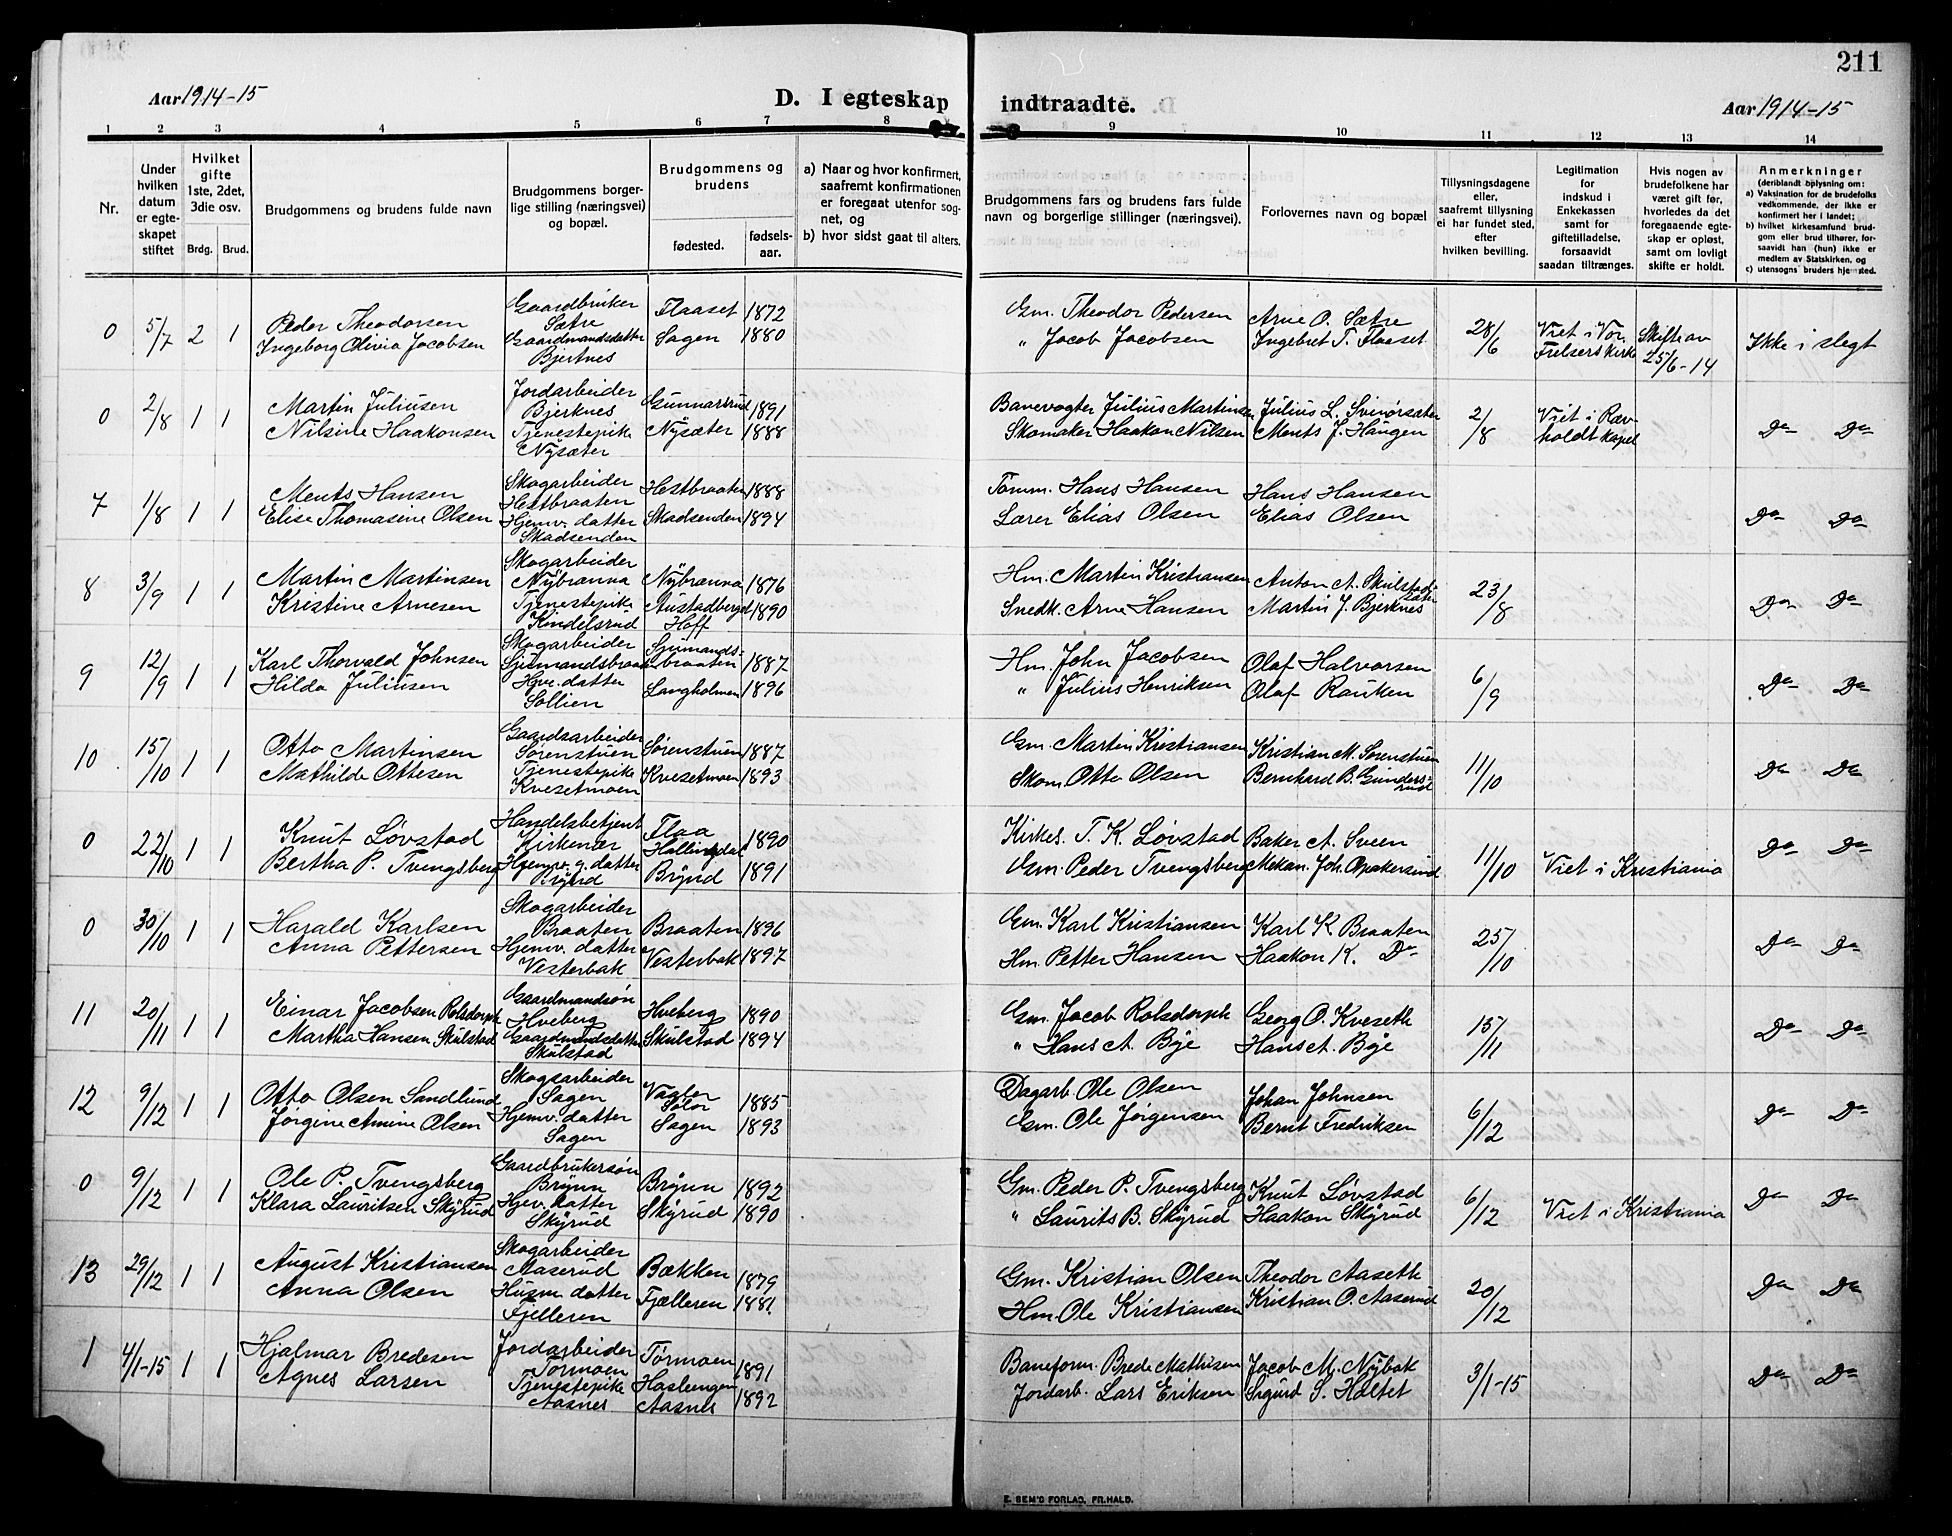 211
Aar 1914-15
D. I egteskap indtraadte.
Aar 1914-15
1 2 3 4 5 6 7 8 9 10 11 12 13 14
Nr.
Under hvilken datum er egteskapet stiftet
Hvilket gifte 1ste, 2det, 3die osv.
Brdg. Brud.
Brudgommens og brudens fulde navn
Brudgommens borgerlige stilling (næringsvei) og bopæl.
Brudgommens og brudens
fødested.
fødselsaar.
a) Naar og hvor konfirmert, saafremt konfirmationen er foregaat utenfor sognet, og
b) hvor sidst gaat til alters.
Brudgommens fars og brudens fars fulde navn og borgerlige stillinger (næringsvei).
Forlovernes navn og bopæl
Tillysningsdagene eller, saafremt tillysning ei har fundet sted, efter hvilken bevilling.
Legitimation for indskud i Enkekassen samt for giftetilladelse, forsaavidt saadan tiltrænges.
Hvis nogen av brudefolkene har været gift før, hvorledes da det foregaaende egteskap er opløst, samt om lovligt skifte er holdt.
Anmerkninger
(deriblandt oplysning om:
a) Vaksination for de brudefolks vedkommende, der ikke er konfirmert her i landet;
b) hvilket kirkesamfund brudgom eller brud tilhører, forsaavidt han (hun) ikke er medlem av Statskirken, og
c) utensogns bruders hjemsted.
0 5/7 2 1 Peder Theodorsen Gaardbruker Sætre Flaaset 1872 Gm. Theodor Pedersen Arne O. Sætre 28/6 Viet i Vor Frelsers kirke Skifte av 25/6-14 Ikke i slegt
Ingeborg Olivia Jacobsen Gaardmandsdatter Bjertnes Sagen 1880 " Jacob Jacobsen Ingebret T. Flaaset
0 2/8 1 1 Martin Juliusen Jordarbeider Bjerknes Gunnarsrud 1891 Banevogter Julius Martinsen Julius L. 2/8 Viet i Rævholdt kapel Do Do
Nilsine Haakonsen Tjenestepike Nysæter Nysæter 1888 Skomaker Haakon Nilsen Ments J. Haugen
7 1/8 1 1 Ments Hansen Skogarbeider Hestbraaten Hestbraaten 1888 Tømm. Hans Hansen Hans Hansen Do Do
Elise Thomasine Olsen Hjemv. datter Skadsenden Skadsenden 1894 Lærer Elias Olsen Elias Olsen
8 3/9 1 1 Martin Martinsen Skogarbeider Nybrænna Nybrænna 1876 Hm. Martin Kristiansen Anton A. Skulstadsæter 23/8 Do Do
Kristine Arnesen Tjenestepike Kindelsrud Austadberget Hoff 1890 Snedk. Arne Hansen Martin J. Bjerknes
9 12/9 1 1 Karl Thorvald Johnsen Skogarbeider 1887 Hm. John Jacobsen Olaf Halvorsen 6/9 Do Do
Hilda Juliusen Hjv. datter Sollien Langholmen 1896 " Julius Henriksen Olaf Rauken
10 15/10 1 1 Otto Martinsen Gaardsarbeider Sørenstuen Sørenstuen 1887 Gm. Martin Kristiansen Kristian M. Sørenstuen 11/10 Do Do
Mathilde Ottesen Tjenestepike Kvesetmoen Kvesetmoen 1893 Skom. Otto Olsen Bernhard B. Gundersrud
0 22/10 1 1 Knut Løvstad Handelsbetjent Kirkenær Flaa Hallingdal 1890 Kirkes. T. K. Løvstad Baker A. Sveen 11/10 Viet i Kristiania Do Do
Bertha P. Tvengsberg Hjemv. g. datter Brynd Brynd 1891 Gm. Peder Tvengsberg Mekan. Joh.
0 30/10 1 1 Harald Karlsen Skogarbeider Braaten Braaten 1896 Gm. Karl Kristiansen Karl K. Braaten 25/10 Do Do
Anna Pettersen Hjemv. datter Vesterbak Vesterbak 1897 Hm. Petter Hansen Haakon K. Do
11 20/11 1 1 Einar Jacobsen Rolsdorph Gaardmandsøn Hveberg Hveberg 1890 Gm. Jacob Rolsdorph Georg O. Kveseth 15/11 Do Do
Martha Hansen Skulstad Gaardmandsdatter Skulstad Skulstad 1894 " Hans A. Bye Hans A. Bye
12 9/12 1 1 Otto Olsen Sandlund Skogsarbeider Sagen Vaaler Solør 1885 Dagarb. Ole Olsen Johan Johnsen 6/12 Do Do
Jørgine Amine Olsen Hjemv. datter Sagen Sagen 1893 Gm. Ole Jørgensen Bernt Fredriksen
0 9/12 1 1 Ole P. Tvengsberg Gaardbrukersøn Brynn Brynn 1892 Gm. Peder P. Tvengsberg Knut Løvstad 6/12 Viet i Kristiania Do Do
Klara Lauritsen Skyrud Hjev. datter Skyrud Skyrud 1890 " Laurits B. Skyrud Haakon Skyrud
13 29/12 1 1 August Kristiansen Skogarbeider Aaserud Bækken 1879 Gm. Kristian Olsen Theodor Aaseth 20/12 Do Do
Anna Olsen Husm. datter Fjelleren Fjælleren 1881 Hm. Ole Kristiansen Kristian O. Aaserud
1 4/1-15 1 1 Hjalmar Bredesen Jordarbeider Tørmoen Tørmoen 1891 Baneform. Brede Mathisen Jacob M. Nybak 3/1-15 Do Do
Agnes Larsen Tjenestepike Aasnes Haslengen Aasnes 1892 Jordarb. Lars Eriksen Sigurd S. Holtet
E. SEM'S FORLAG, FR.HALD.